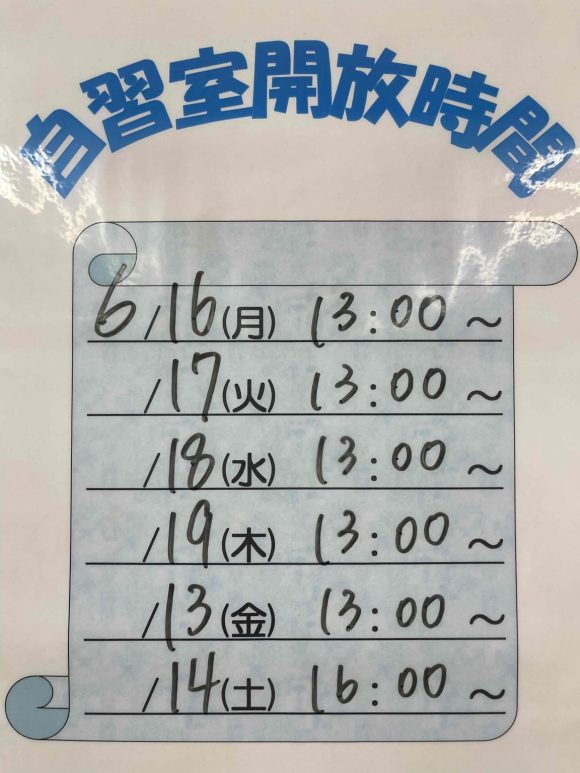 自習室開放時間
6/16(月) 13:00～
/17(火) 13:00～
/18(水) 13:00～
/19(木) 13:00～
/13(金) 13:00～
/14(土) 16:00～